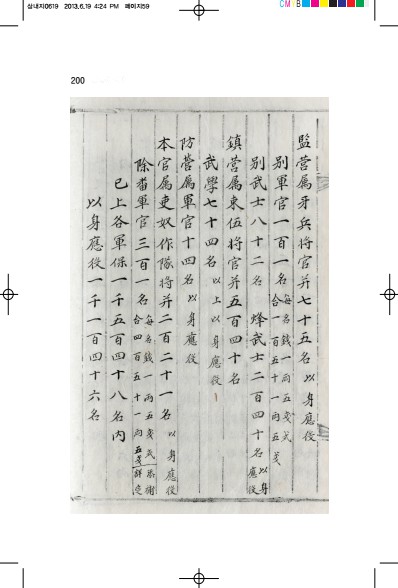 삼내지0619 2013.6.19 4:24 PM 페이지59
CM
200
監營属牙兵將官并七十五名 以身應役
别軍官一百一名 每名錢一両五戔式 合一百五十一両五戔
别武士八十二名 烽武士二百四十名 以身應役
鎮營属東伍將官并五百四十名
武學七十四名 以上以身應役
防營属軍官十四名 以身應役
本官属吏奴作隊將并二百二十一名 以身應役
除番軍官三百一名 每名錢一両五戔式 合四百五十一両五戔
已上各軍保一千五百四十八名内
以身應役一千一百四十六名